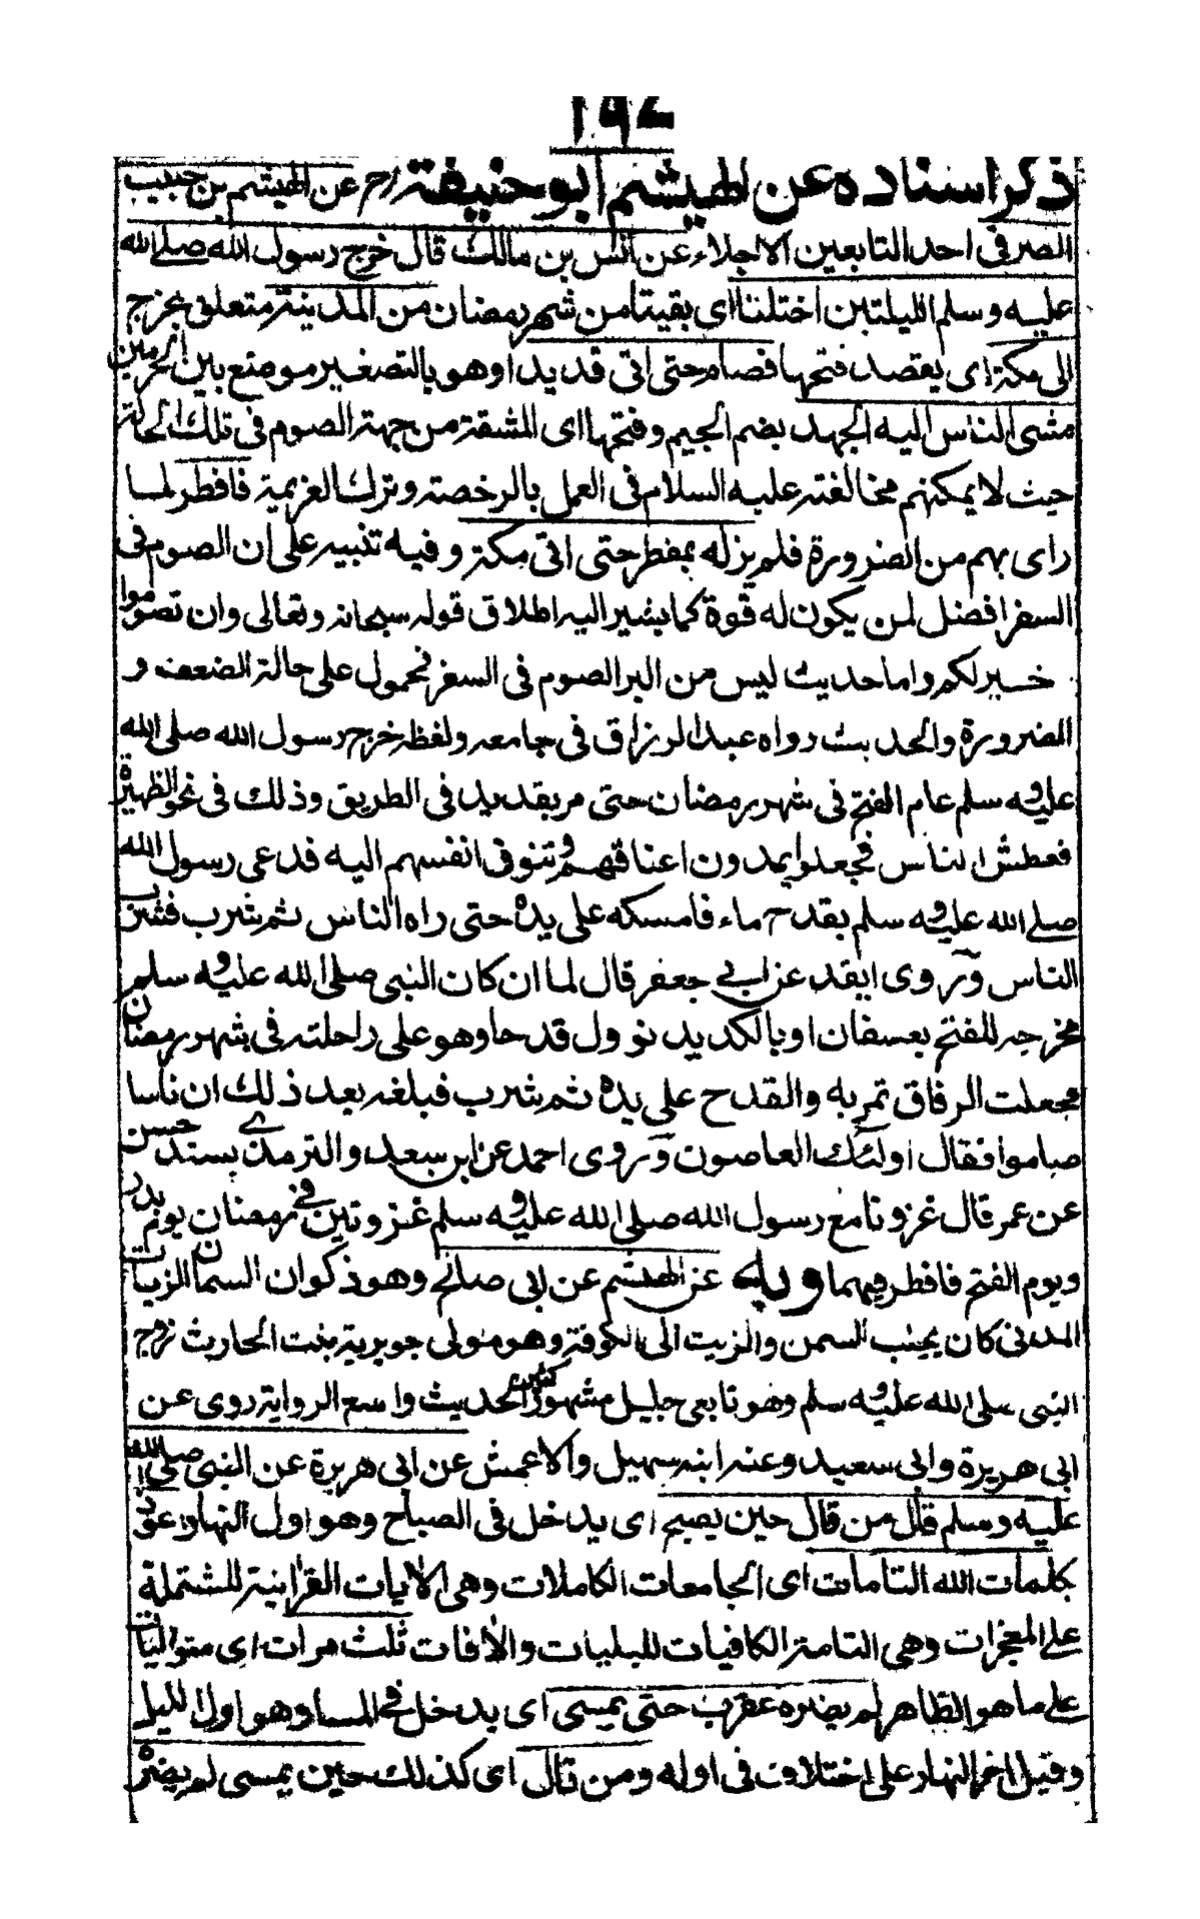 ١٩٤
ذكر اسناده عن الهيثم ابو حنيفة رح عن الهيثم بن حبيب
الصرفى احد التابعين الاجلاء عن انس بن مالك قال خرج رسول الله صلى الله
عليه وسلم لليلتين اختلتا اى بقيتا من شهر رمضان من المدينة متعلق بخرج
الى مكة اى يقصد فتحها فصام حتى اتى قديدا وهو بالتصغير موضع بين الحرمين
مشى الناس اليه الجهد بضم الجيم وفتحها اى المشقة من جهة الصوم فى تلك الحالة
حيث لا يمكنهم مخالفته عليه السلام فى العمل بالرخصة وترك العزيمة فافطر لما
راى بهم من الضرورة فلم يزل بمفطر حتى اتى مكة وفيه تنبيه على ان الصوم فى
السفر افضل لمن يكون له قوة كما يشير اليه اطلاق قوله سبحانه وتعالى وان تصوموا
خير لكم واما حديث ليس من البر الصوم فى السفر فمحمول على حالة الضعف و
الضرورة والحديث رواه عبد الرزاق فى جامعه ولفظه خرج رسول الله صلى الله
عليه وسلم عام الفتح فى شهر رمضان حتى مر بقديد فى الطريق وذلك فى نحو الظهيرة
فعطش الناس فجعلوا يمدون اعناقهم وتتوق انفسهم اليه فدعى رسول الله
صلى الله عليه وسلم بقدح ماء فامسكه على يده حتى راه الناس ثم شرب فشرب
الناس وروى ايضا عن ابى جعفر قال لما ان كان النبى صلى الله عليه وسلم
مخرجه للفتح بعسفان او بالكديد نوول قدحا وهو على راحلته فى شهر رمضان
فجعلت الرفاق تمر به والقدح على يده ثم شرب فبلغه بعد ذلك ان ناسا
صاموا فقال اولئك العاصون وروى احمد عن ابن سعد والترمذى بسند حسن
عن عمر قال غزونا مع رسول الله صلى الله عليه وسلم غزوتين فى رمضان يوم بدر
ويوم الفتح فافطر فيهما وبه عن الهيثم عن ابى صالح وهو ذكوان السمان الزيات
المدنى كان يجلب السمن والزيت الى الكوفة وهو مولى جويرية بنت الحارث زوج
النبى صلى الله عليه وسلم وهو تابعى جليل مشهور كثير الحديث واسع الرواية روى عن
ابى هريرة وابى سعيد وعنه ابنه سهيل والاعمش عن ابى هريرة عن النبى صلى الله
عليه وسلم قال من قال حين يصبح اى يدخل فى الصباح وهو اول النهار اعوذ
بكلمات الله التامات اى الجامعات الكاملات وهى الايات القرانية المشتملة
على المعجزات وهى التامة الكافيات للبليات والافات ثلث مرات اى متواليات
على ما هو الظاهر لم يضره عقرب حتى يمسى اى يدخل فى المساء وهو اول الليل
وقيل اخر النهار على اختلاف فى اوله ومن قال اى كذلك حين يمسى لم يضره